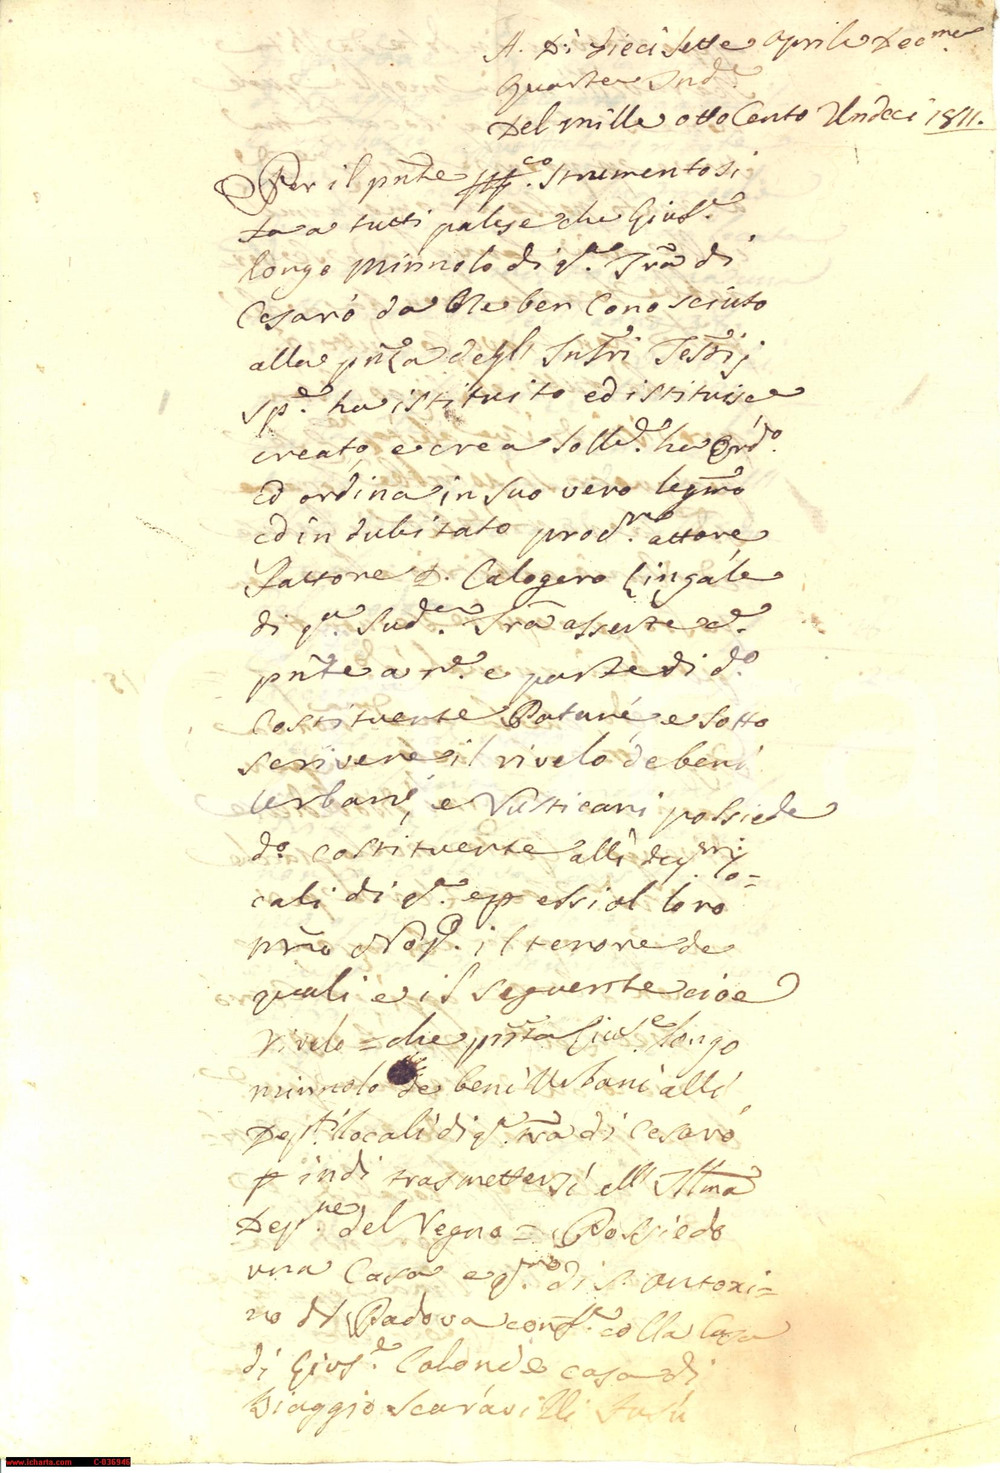 A. Di dieci sette Aprile Decme
quarta Inde
Del mille otto Cento Undeci 1811.
Per il pnte ppco strumento si
fa a tutti palese che Giuse
longo minnolo di qa Tra di
Cesarò da Me ben Conosciuto
alla pnza degl' Infri Testij
spe ha istituito ed istituisce
creato, e crea solle ha Ordo
ed ordina in suo vero legmo
ed indubitato procre attore
fattore D. Calogero Zingále
di qa Sude Tra assente
pnte a e parte di do
Costituente e sotto
scrivere il rivelo de beni
Urbani, e Rusticani possiede
do costituente alli lo=
cali di qa ep essi al loro
pro Not. il tenore de
quali e il seguente cioe
Rivelo = che pnta Giuse longo
minnolo de beni Urbani alli
Depti locali di qa Tra di Cesarò
p indi trasmettersi all' Illma
Depne del Regno = Possiedo
una Casa e qmo di S. Antoni=
no di Padova conf. colla Casa
di Giuse Calond e casa di
Biaggio Scarávilli
www.icharta.com C-036946